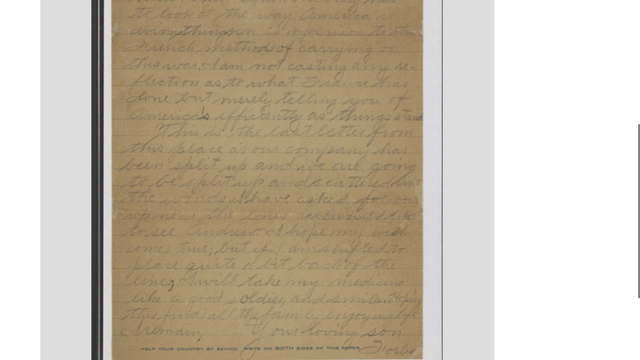 to look at the way America is
doing things in comparison to the
French methods of carrying on
this war. I am not casting any re-
flection as to what France has
done but merely telling you of
America's efficiently as things stand
This is the last letter from
this place as our company has
been split up and we are going
to be split up and scattered
the winds. I have asked for
the lines
to see Andrew & I hope my wish
comes true; but if I am shifted to
place quite a bit back of the
lines I will take my medicine
like a good soldier, and smile. Hoping
this finds all the family enjoying
I remain, Your loving son
HELP YOUR COUNTRY BY SAVING. WRITE ON BOTH SIDES OF THIS PAPER